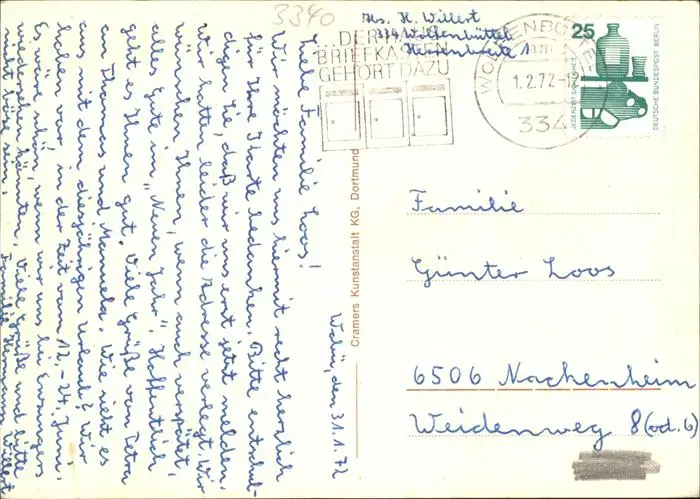 3340
Abs. H. Willert
334 Wolfenbüttel
Herrenbreite 1
...DER
BRIEFKASTEN
GEHÖRT DAZU
WOLFENBÜTTEL
1.2.72
334
25
JEDERZEIT SICHERHEIT
DEUTSCHE BUNDESPOST BERLIN
Wobü, den 31.1.72
Liebe Familie Loos!
Wir möchten uns hiermit recht herzlich
für Ihre Karte bedanken. Bitte entschul-
digen Sie, daß wir uns erst jetzt melden.
Wir hatten leider die Adresse verlegt. Wir
wünschen Ihnen, wenn auch verspätet,
alles Gute im "Neuen Jahr". Hoffentlich
geht es Ihnen gut. Viele Grüße von Petra
an Thomas und Manuela. Wie sieht es
aus mit dem diesjährigen Urlaub? Wir
haben vor in der Zeit vom 12.-24. Juni.
Es wäre schön, wenn wir uns bei
wiedersehen könnten. Viele Grüße und bitte
nicht böse sein.
Familie Hermann Willert
Cramers Kunstanstalt KG, Dortmund
Familie
Günter Loos
6506 Nackenheim
Weidenweg 8 (od. 6)